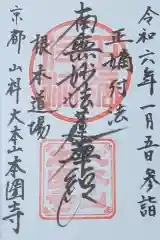 令和六年一月五日参詣
正嫡付法
南無妙法蓮華経
根本道場
京都山科大本山本圀寺